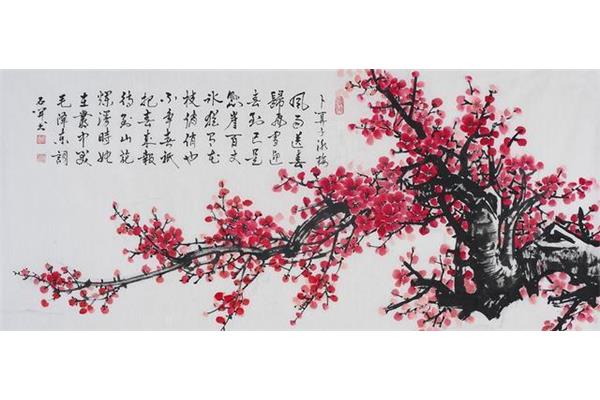 卜算子咏梅
風雨送春
歸飛雪迎
春到已是
懸崖百丈
冰猶有花
枝俏俏也
不争春祇
把春来報
待到山花
爛漫時她
在叢中笑
毛澤東詞